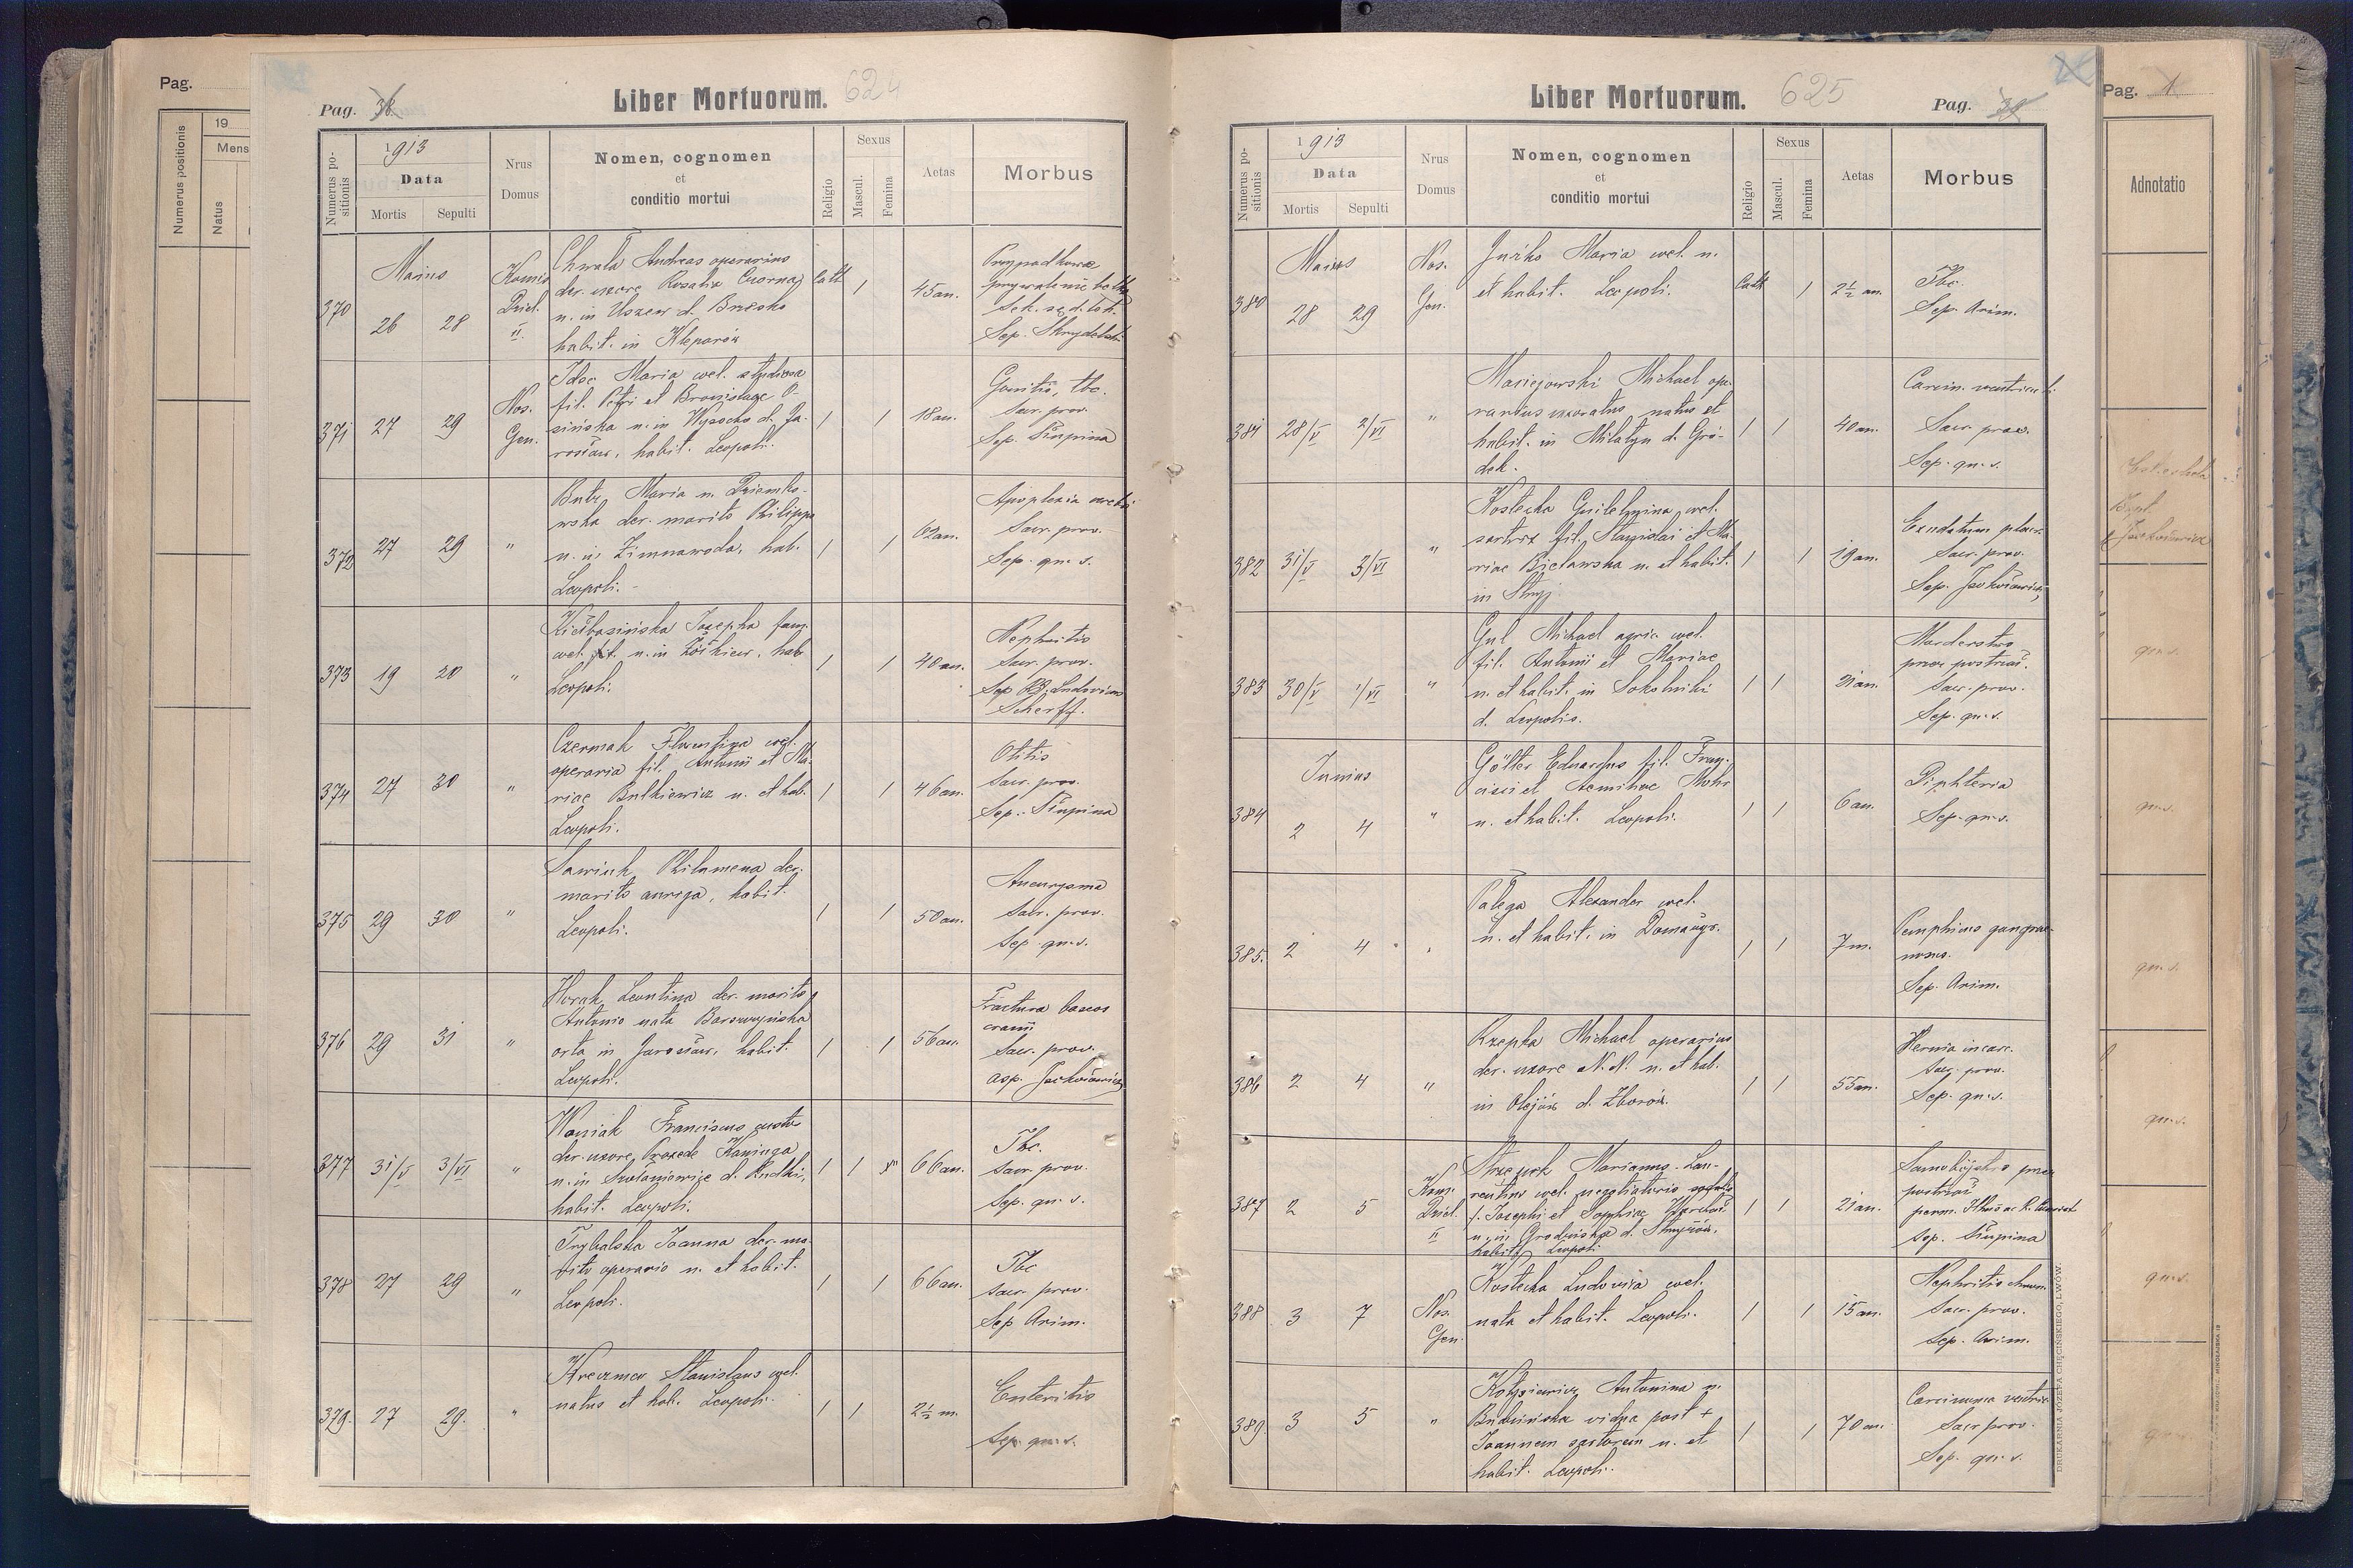 Pag.
Numerus positionis
19
Mens
Natus
Pag. 38
Liber Mortuorum.
624
Numerus positionis
1913
Data
Mortis
Sepulti
Nrus
Domus
Nomen, cognomen
et
conditio mortui
Religio
Sexus
Mascul.
Femina
Aetas
Morbus
370
Maius
26 28
Komis
Dziel.
II.
Chwała Andreas operarius
der. uxore Rosalia Czorna
n. in Uszew d. Brzesko
habit. in Kleparów
Cath
1
45 an.
Przypadkowe
przywalenie belką
Sek. sąd. lek.
371
27 29
Nos.
Gen.
Maria coel. studiosa
fil. Petri et Bronislaae O-
sińska n. in Wysocko d. Ja-
rosław, habit. Leopoli.
1 1
18 an.
Gonitis, tbc.
Sacr. prov.
Sep. Słupina
372
27 29
"
Butz Maria n. Dziemko-
wska der. marito Philippo
n. in Zimnawoda, hab.
Leopoli.
1 1
62 an.
Apoplexia cerebri
Sacr. prov.
Sep. qu. s.
373
19 20
"
Kiełbasińska Josepha fam.
coel. n. in Żółkiew, hab.
Leopoli.
1 1
40 an.
Nephritis
Sacr. prov.
Sep. Ludovicus
Scherff.
374
27 30
"
Czermak Florentina coel.
operaria fil. Antonii et Ma-
riae Bulkiewicz n. et hab.
Leopoli.
1 1
46 an.
Otitis
Sacr. prov.
Sep. Słupina
375
29 30
"
Sawiuk Philomena der.
marito auriga, habit.
Leopoli.
1 1
50 an.
Aneurysma
Sacr. prov.
Sep. qu. s.
376
29 31
"
Horak Leontina der. marito
Antonio nata
orta in Jarosław, habit.
Leopoli.
1 1
56 an.
Fractura baseos
cranii
Sacr. prov.
asp. Jackowicz
377
31/V 3/VI
"
Woniak Franciscus custos
der. uxore Praxede Kaninga
n. in d. Rudki,
habit. Leopoli.
1 1
66 an.
Tbc.
Sacr. prov.
Sep. qu. s.
378
27 29
"
Trybalska Joanna der. ma-
rito operario n. et habit.
Leopoli.
1 1
66 an.
Tbc
Sacr. prov.
Sep. Arim.
379.
27 29.
"
Kreczmer Stanislaus coel.
natus et hab. Leopoli.
1 1
2½ m.
Enteritis
Sep. qu. s.
Liber Mortuorum.
625
Pag. 39
Numerus positionis
1913
Data
Mortis
Sepulti
Nrus
Domus
Nomen, cognomen
et
conditio mortui
Religio
Sexus
Mascul.
Femina
Aetas
Morbus
380
Maius
28 29
Nos.
Gen.
Juźko Maria coel. n.
et habit. Leopoli.
Cath
1
2½ an.
Tbc.
Sep. Arim.
381
28/V 2/VI
"
Maciejowski Michael ope-
rarius uxoratus natus et
habit. in Milatyn d. Gró-
dek.
1 1
40 an.
Carcin. ventriculi
Sacr. prov.
Sep. qu. s.
382
31/V 3/VI
"
Kostecka Guilelmina coel.
sartrix fil. Stanislai et Ma-
riae Bielawska n. et habit.
in Stryj
1 1
19 an.
Exudatum pleur.
Sacr. prov.
Sep. Jackowicz
383
30/V 1/VI
"
Gul Michael agric. coel.
fil. Antonii et Mariae
n. et habit. in Sokolniki
d. Leopolis.
1 1
21 an.
Morderstwo
przez postrzał.
Sacr. prov.
Sep. qu. s.
384
Junius
2 4
"
Gölter Eduardus fil. Fran-
cisci et Aemiliae Mohr
n. et habit. Leopoli.
1 1
6 an.
Diphteria
Sep. qu. s.
385.
2 4
"
Pałega Alexander coel.
n. et habit. in Domażyr.
1 1
7 m.
Pemphicus gangrae-
nosus.
Sep. Arim.
386
2 4
"
Rzepka Michael operarius
der. uxore N. N. n. et hab.
in Olejów d. Zborów.
1 1
55 an.
Hernia incarc.
Sacr. prov.
Sep. qu. s.
387
2 5
Kom.
Dziel.
II
Marianus Lau-
rentius coel. negotiatoris
f. Josephi et Sophiae
n. in Grodzisko d. Strzyżów.
habit. Leopoli
1 1
21 an.
Samobójstwo przez
postrzał
Sep. Słupina
388
3 7
Nos.
Gen.
Kostecka Ludovica coel.
nata et habit. Leopoli.
1 1
15 an.
Nephritis chron.
Sacr. prov.
Sep. Arim.
389.
3 5
"
Kotysiewicz Antonina n.
Budzińska vidua post +
Joannem sartorem n. et
habit. Leopoli.
1 1
70 an.
Carcinoma ventric.
Sacr. prov.
Sep. qu. s.
DRUKARNIA JÓZEFA CHĘCIŃSKIEGO, LWÓW.
Pag. 1
Adnotatio
Jackowicz
qu. s.
qu. s.
qu. s.
qu. s.
qu. s.